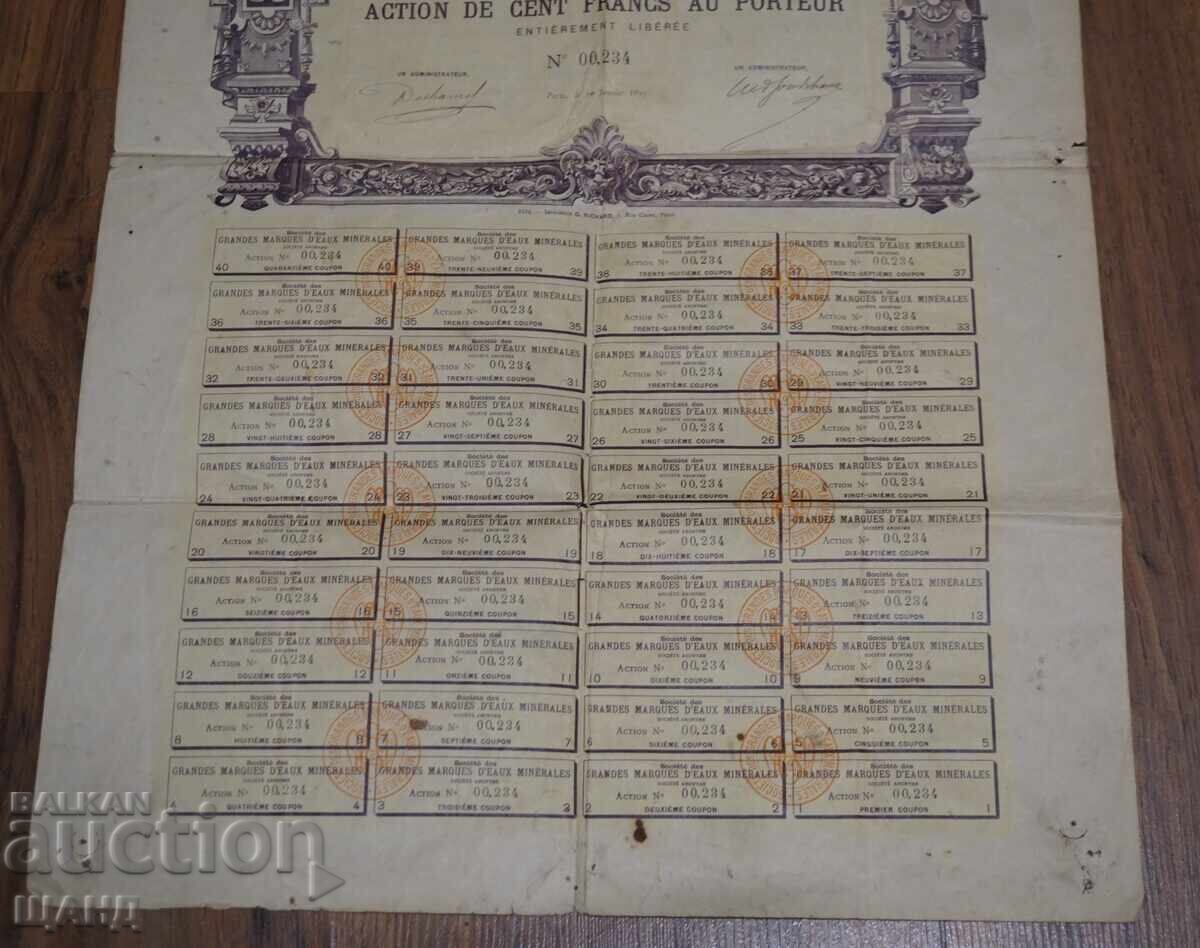 ACTION DE CENT FRANCS AU PORTEUR
ENTIÈREMENT LIBÉRÉE
N° 00,234
UN ADMINISTRATEUR,
UN ADMINISTRATEUR,
Paris, le
Imprimerie G. RICHARD, Rue Paris
Société des Société des Société des Société des
GRANDES MARQUES D'EAUX MINÉRALES GRANDES MARQUES D'EAUX MINÉRALES GRANDES MARQUES D'EAUX MINÉRALES GRANDES MARQUES D'EAUX MINÉRALES
SOCIÉTÉ ANONYME SOCIÉTÉ ANONYME SOCIÉTÉ ANONYME SOCIÉTÉ ANONYME
ACTION N° 00,234 ACTION N° 00,234 ACTION N° 00,234 ACTION N° 00,234
40 QUARANTIÈME COUPON 40 39 TRENTE-NEUVIÈME COUPON 39 38 TRENTE-HUITIÈME COUPON 38 37 TRENTE-SEPTIÈME COUPON 37
Société des Société des Société des Société des
GRANDES MARQUES D'EAUX MINÉRALES GRANDES MARQUES D'EAUX MINÉRALES GRANDES MARQUES D'EAUX MINÉRALES GRANDES MARQUES D'EAUX MINÉRALES
SOCIÉTÉ ANONYME SOCIÉTÉ ANONYME SOCIÉTÉ ANONYME SOCIÉTÉ ANONYME
ACTION N° 00,234 ACTION N° 00,234 ACTION N° 00,234 ACTION N° 00,234
36 TRENTE-SIXIÈME COUPON 36 35 TRENTE-CINQUIÈME COUPON 35 34 TRENTE-QUATRIÈME COUPON 34 33 TRENTE-TROISIÈME COUPON 33
Société des Société des Société des Société des
GRANDES MARQUES D'EAUX MINÉRALES GRANDES MARQUES D'EAUX MINÉRALES GRANDES MARQUES D'EAUX MINÉRALES GRANDES MARQUES D'EAUX MINÉRALES
SOCIÉTÉ ANONYME SOCIÉTÉ ANONYME SOCIÉTÉ ANONYME SOCIÉTÉ ANONYME
ACTION N° 00,234 ACTION N° 00,234 ACTION N° 00,234 ACTION N° 00,234
32 TRENTE-DEUXIÈME COUPON 32 31 TRENTE-UNIÈME COUPON 31 30 TRENTIÈME COUPON 30 29 VINGT-NEUVIÈME COUPON 29
Société des Société des Société des Société des
GRANDES MARQUES D'EAUX MINÉRALES GRANDES MARQUES D'EAUX MINÉRALES GRANDES MARQUES D'EAUX MINÉRALES GRANDES MARQUES D'EAUX MINÉRALES
SOCIÉTÉ ANONYME SOCIÉTÉ ANONYME SOCIÉTÉ ANONYME SOCIÉTÉ ANONYME
ACTION N° 00,234 ACTION N° 00,234 ACTION N° 00,234 ACTION N° 00,234
28 VINGT-HUITIÈME COUPON 28 27 VINGT-SEPTIÈME COUPON 27 26 VINGT-SIXIÈME COUPON 26 25 VINGT-CINQUIÈME COUPON 25
Société des Société des Société des Société des
GRANDES MARQUES D'EAUX MINÉRALES GRANDES MARQUES D'EAUX MINÉRALES GRANDES MARQUES D'EAUX MINÉRALES GRANDES MARQUES D'EAUX MINÉRALES
SOCIÉTÉ ANONYME SOCIÉTÉ ANONYME SOCIÉTÉ ANONYME SOCIÉTÉ ANONYME
ACTION N° 00,234 ACTION N° 00,234 ACTION N° 00,234 ACTION N° 00,234
24 VINGT-QUATRIÈME COUPON 24 23 VINGT-TROISIÈME COUPON 23 22 VINGT-DEUXIÈME COUPON 22 21 VINGT-UNIÈME COUPON 21
Société des Société des Société des Société des
GRANDES MARQUES D'EAUX MINÉRALES GRANDES MARQUES D'EAUX MINÉRALES GRANDES MARQUES D'EAUX MINÉRALES GRANDES MARQUES D'EAUX MINÉRALES
SOCIÉTÉ ANONYME SOCIÉTÉ ANONYME SOCIÉTÉ ANONYME SOCIÉTÉ ANONYME
ACTION N° 00,234 ACTION N° 00,234 ACTION N° 00,234 ACTION N° 00,234
20 VINGTIÈME COUPON 20 19 DIX-NEUVIÈME COUPON 19 18 DIX-HUITIÈME COUPON 18 17 DIX-SEPTIÈME COUPON 17
Société des Société des Société des Société des
GRANDES MARQUES D'EAUX MINÉRALES GRANDES MARQUES D'EAUX MINÉRALES GRANDES MARQUES D'EAUX MINÉRALES GRANDES MARQUES D'EAUX MINÉRALES
SOCIÉTÉ ANONYME SOCIÉTÉ ANONYME SOCIÉTÉ ANONYME SOCIÉTÉ ANONYME
ACTION N° 00,234 ACTION N° 00,234 ACTION N° 00,234 ACTION N° 00,234
16 SEIZIÈME COUPON 16 15 QUINZIÈME COUPON 15 14 QUATORZIÈME COUPON 14 13 TREIZIÈME COUPON 13
Société des Société des Société des Société des
GRANDES MARQUES D'EAUX MINÉRALES GRANDES MARQUES D'EAUX MINÉRALES GRANDES MARQUES D'EAUX MINÉRALES GRANDES MARQUES D'EAUX MINÉRALES
SOCIÉTÉ ANONYME SOCIÉTÉ ANONYME SOCIÉTÉ ANONYME SOCIÉTÉ ANONYME
ACTION N° 00,234 ACTION N° 00,234 ACTION N° 00,234 ACTION N° 00,234
12 DOUZIÈME COUPON 12 11 ONZIÈME COUPON 11 10 DIXIÈME COUPON 10 9 NEUVIÈME COUPON 9
Société des Société des Société des Société des
GRANDES MARQUES D'EAUX MINÉRALES GRANDES MARQUES D'EAUX MINÉRALES GRANDES MARQUES D'EAUX MINÉRALES GRANDES MARQUES D'EAUX MINÉRALES
SOCIÉTÉ ANONYME SOCIÉTÉ ANONYME SOCIÉTÉ ANONYME SOCIÉTÉ ANONYME
ACTION N° 00,234 ACTION N° 00,234 ACTION N° 00,234 ACTION N° 00,234
8 HUITIÈME COUPON 8 7 SEPTIÈME COUPON 7 6 SIXIÈME COUPON 6 5 CINQUIÈME COUPON 5
Société des Société des Société des Société des
GRANDES MARQUES D'EAUX MINÉRALES GRANDES MARQUES D'EAUX MINÉRALES GRANDES MARQUES D'EAUX MINÉRALES GRANDES MARQUES D'EAUX MINÉRALES
SOCIÉTÉ ANONYME SOCIÉTÉ ANONYME SOCIÉTÉ ANONYME SOCIÉTÉ ANONYME
ACTION N° 00,234 ACTION N° 00,234 ACTION N° 00,234 ACTION N° 00,234
4 QUATRIÈME COUPON 4 3 TROISIÈME COUPON 3 2 DEUXIÈME COUPON 2 1 PREMIER COUPON 1
BALKAN
auction
ШАНД